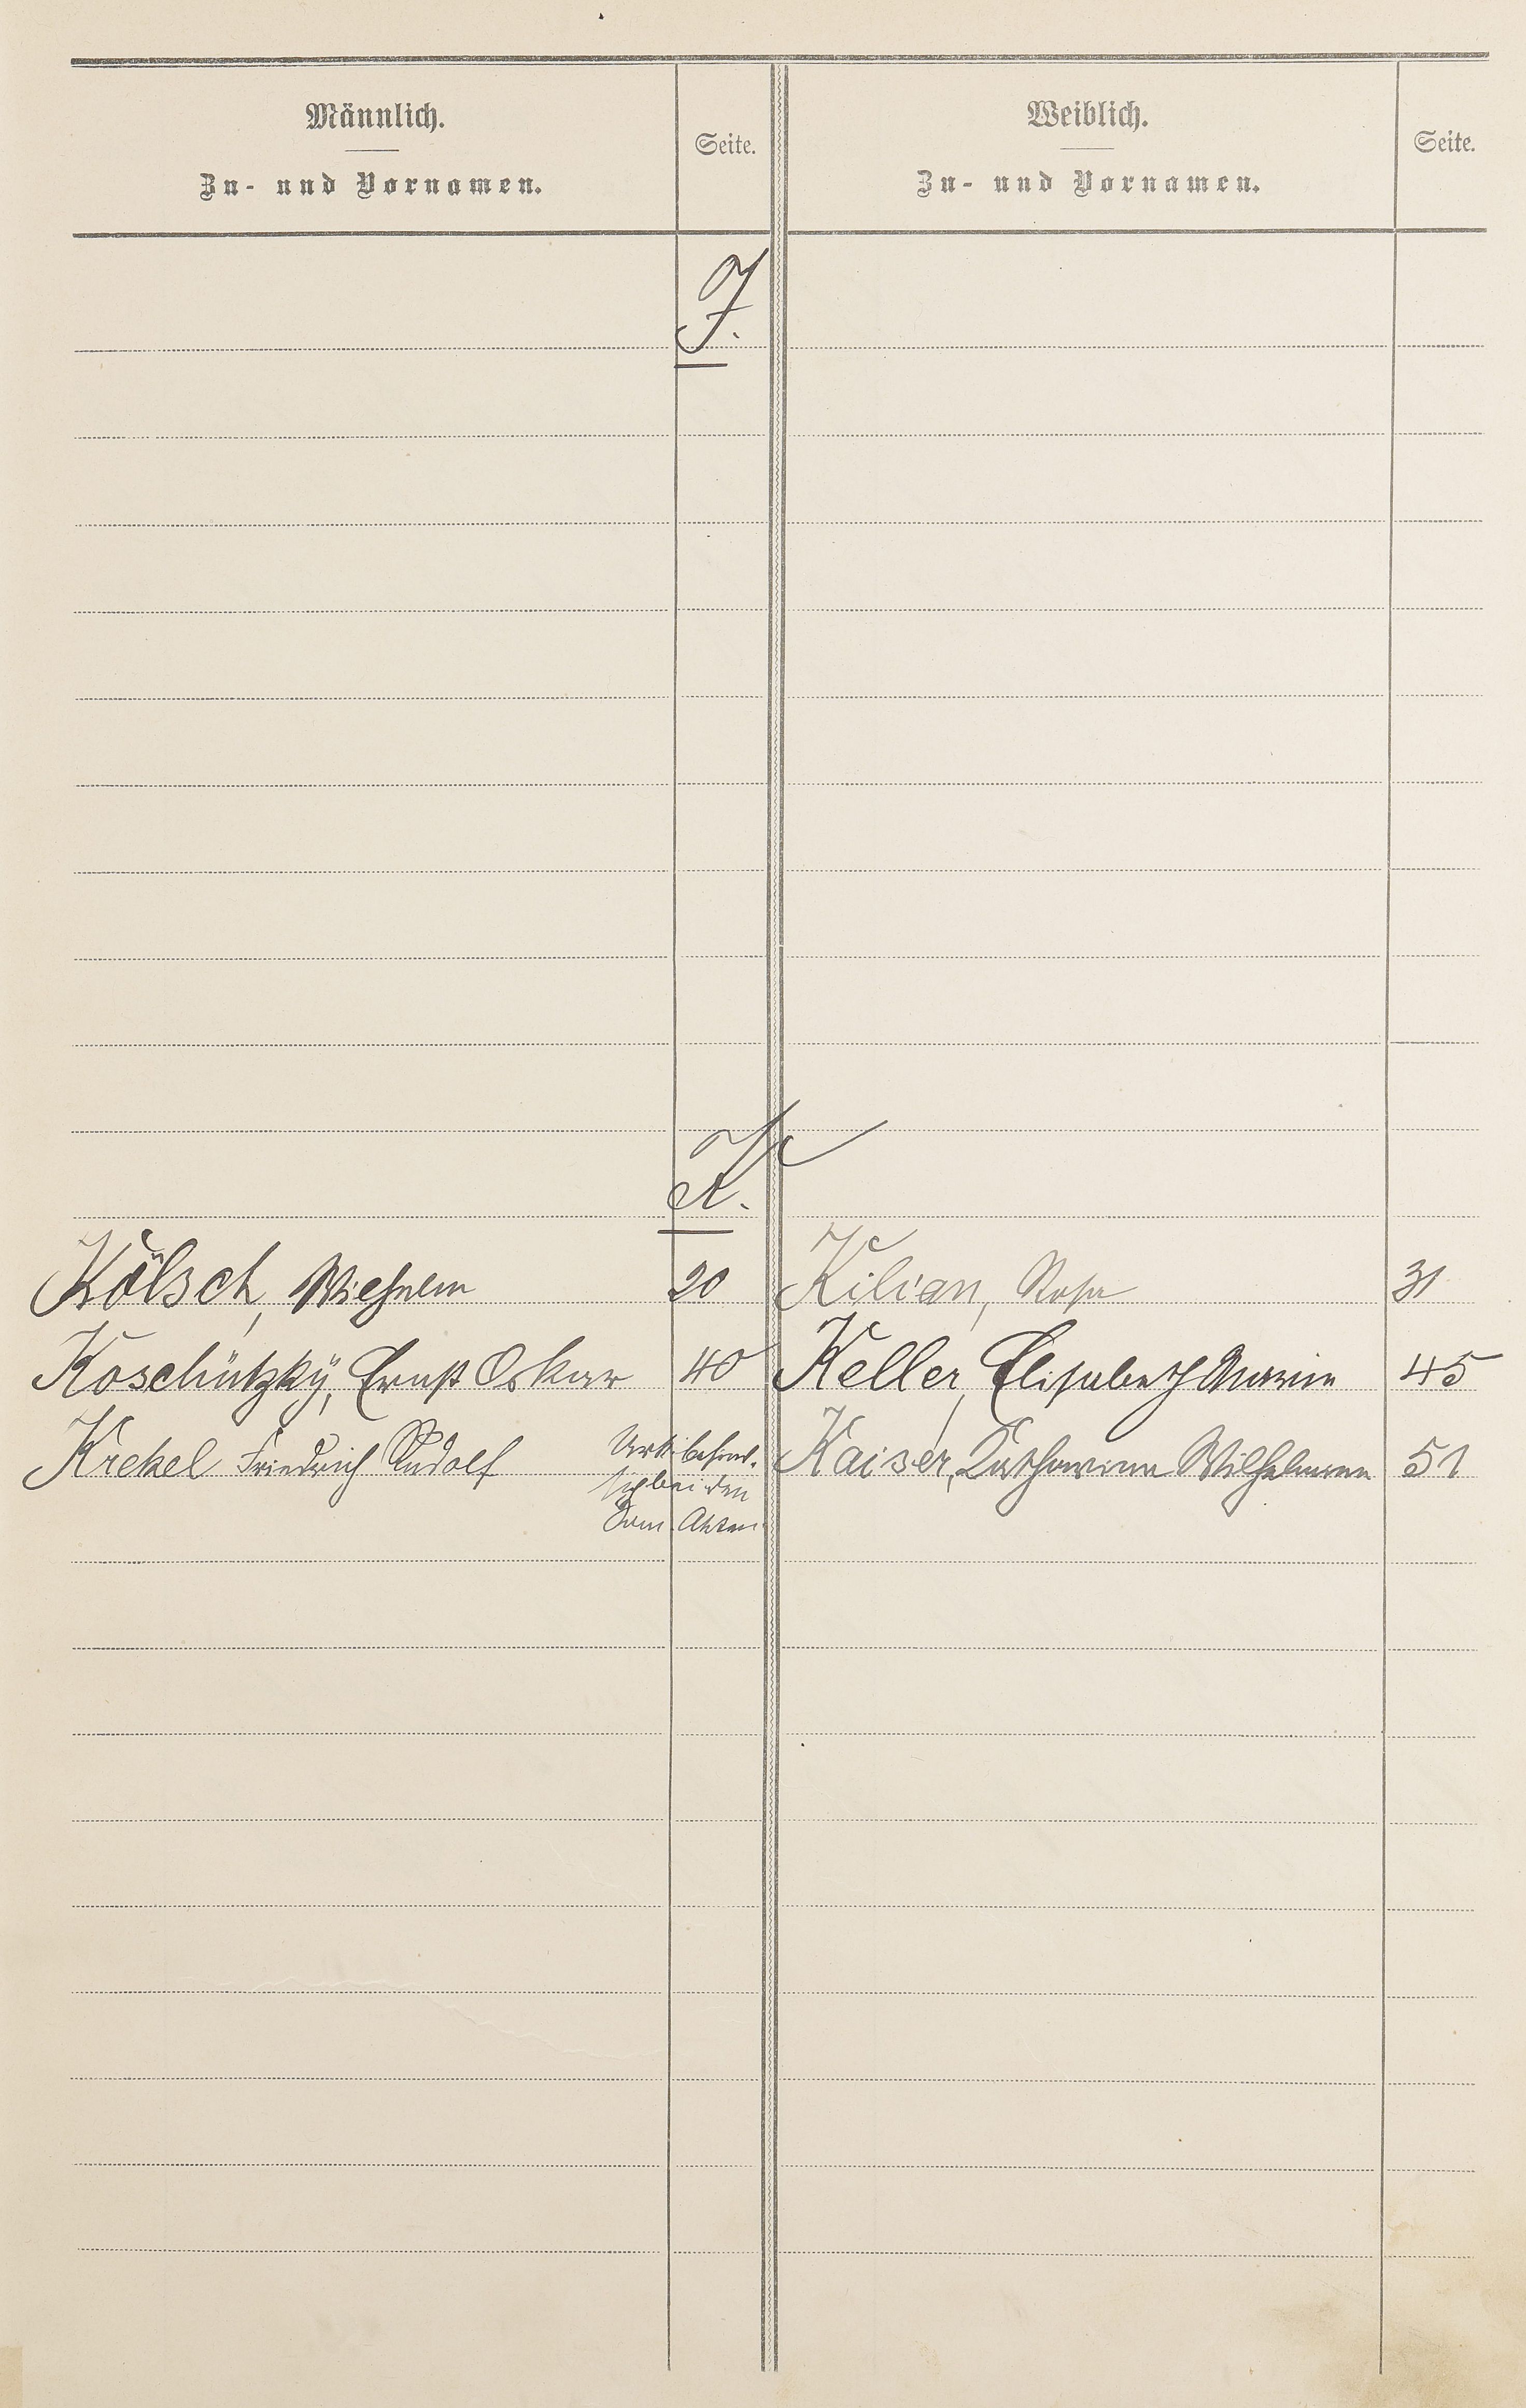 Männlich.
Zu- und Vornamen.
Seite.
Weiblich.
Zu- und Vornamen.
Seite.
J.
K.
Kölsch, Wilhelm 20
Kilian, Rosa 31
Koschützky, Ernst Oskar 40
Keller, Elisabeth Marie 45
Krekel Friedrich Rudolf
Kaiser, Katharina Wilhelmine 51
Urk. befind.
sich bei den
Akten